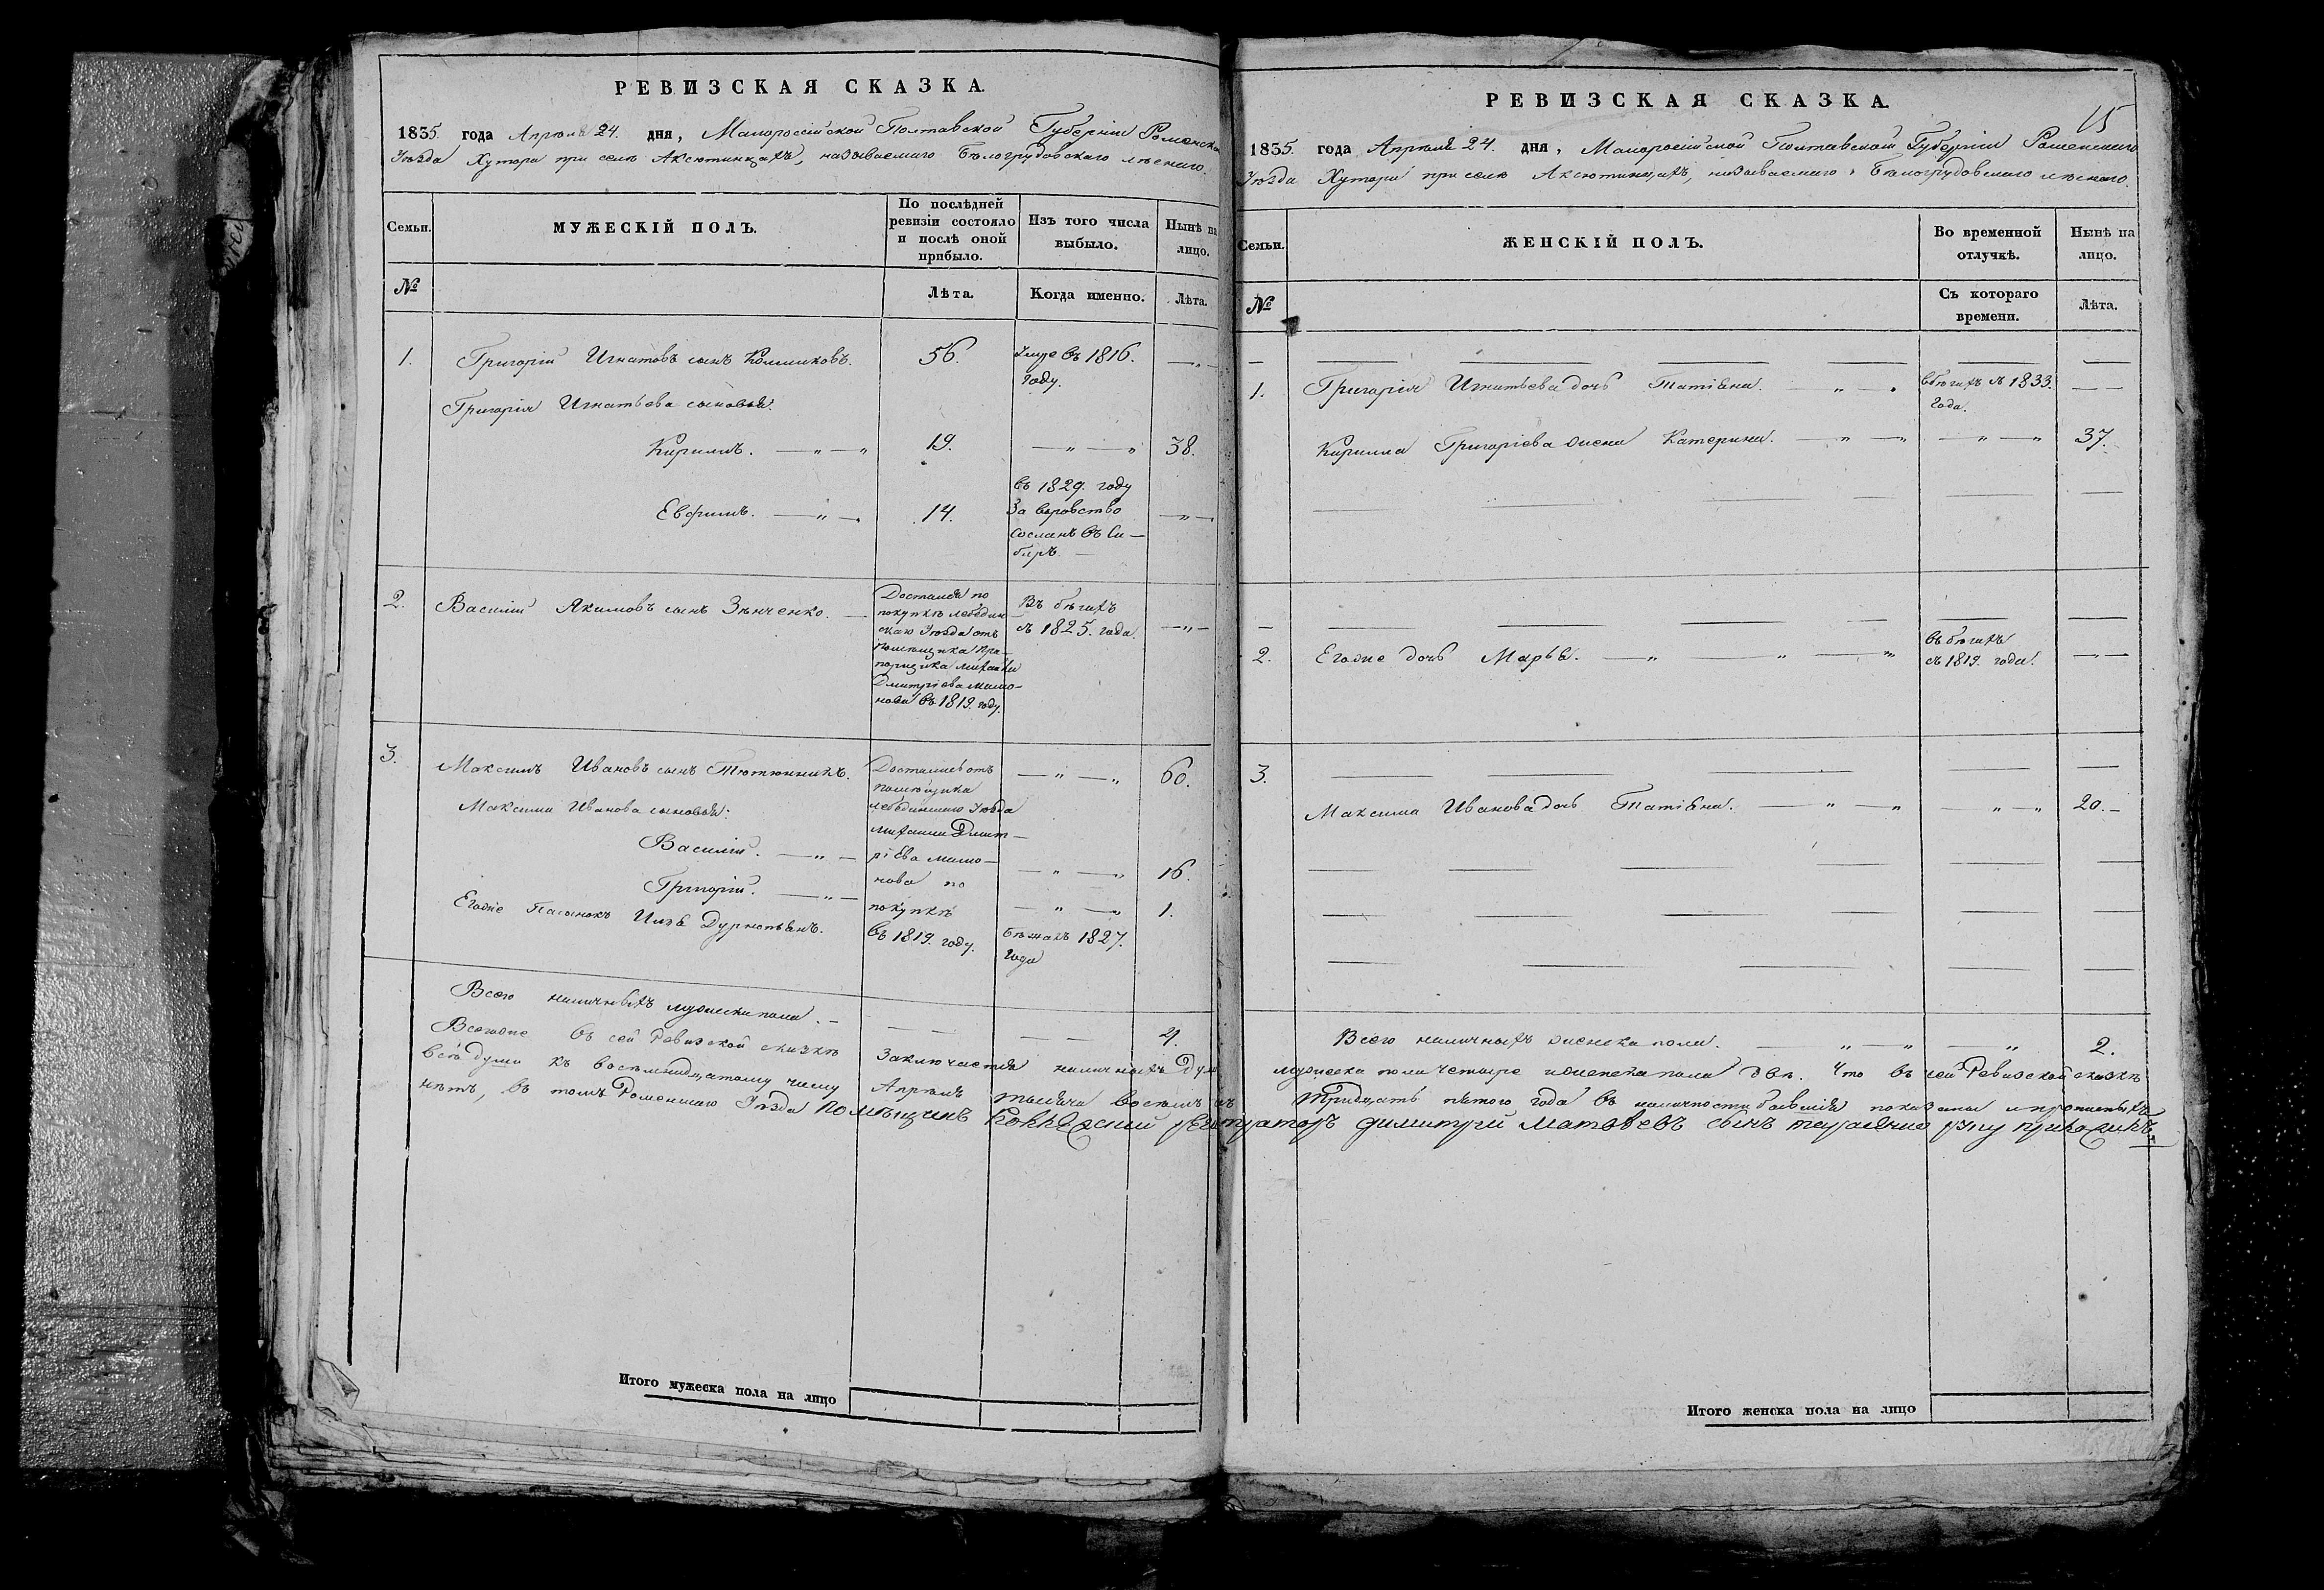 РЕВИЗСКАЯ СКАЗКА.
1835. года Апрѣля 24. дня, Малороссійской Полтавской Губерніи Роменска
Уѣзда Хутора при селѣ Аксютинцахъ, называемаго Бѣлогрудовскаго лѣснаго.
Семьи.
МУЖЕСКІЙ ПОЛЪ.
По послѣдней ревизіи состояло и послѣ оной прибыло.
Изъ того числа выбыло.
Нынѣ на лицо.
№
Лѣта.
Когда именно.
Лѣта.
1. Григорій Игнатовъ сынъ 56. Умре въ 1816.
году.
Григорія Игнатьева сыновья.
Кирилъ. 19. 38.
въ 1829. году
Евфимъ. 14. За воровство
сосланъ въ Си-
биръ.
2. Василій Якимовъ сынъ Зѣнченко.
Достался по
покупкѣ лебедин
скаго Уѣзда отъ
помѣщика пра-
порщика Михаила
Дмитріева
въ 1819. году.
Въ бѣгахъ
съ 1825. года.
3. Максимъ Ивановъ сынъ Тютюнникъ. 60.
Максима Иванова сыновья:
Василій. 16.
Григорій. 1.
Егоже Пасынокъ Илья
Достались отъ
помѣщика
лебединскаго Уѣзда
Михаила Дмит-
ріева
по
покупкѣ
въ 1819. году.
Бѣжалъ 1827.
года
Всего наличныхъ мужеска пола. 4.
Всегоже въ сей Ревизской сказкѣ заключается наличныхъ Душ
всѣ души къ восемнадцатому числу Апрѣля тысяча восемь сотъ
нѣтъ, въ томъ Роменскаго Уѣзда помѣщикъ регистраторъ
Итого мужеска пола на лицо
РЕВИЗСКАЯ СКАЗКА.
15
1835. года Апрѣля 24. дня, Малоросійской Полтавской Губерніи Роменскаго
Уѣзда Хутора при селѣ Аксютинцахъ, называемаго Бѣлогрудовскаго лѣснаго.
Семьи.
ЖЕНСКІЙ ПОЛЪ.
Во временной отлучкѣ.
Нынѣ на лицо.
№
Съ котораго времени.
Лѣта.
1. Григорія Игнатьева дочь Татіяна. Вбѣгахъ съ 1833.
года.
Кирилла Григоріева жена Катерина. 37.
2. Егоже дочь Марья. въ бѣгахъ
съ 1819. года.
3.
Максима Иванова дочь Татіяна. 20.
Всего наличныхъ женска пола. 2.
мужеска пола четыре иженска пола двѣ. Что въ сей Ревизской сказкѣ
тридцать пятого года въ наличности бывшія показаны ипрописныхъ
димитрий матвѣевъ сынъ руку приложилъ
Итого женска пола на лицо